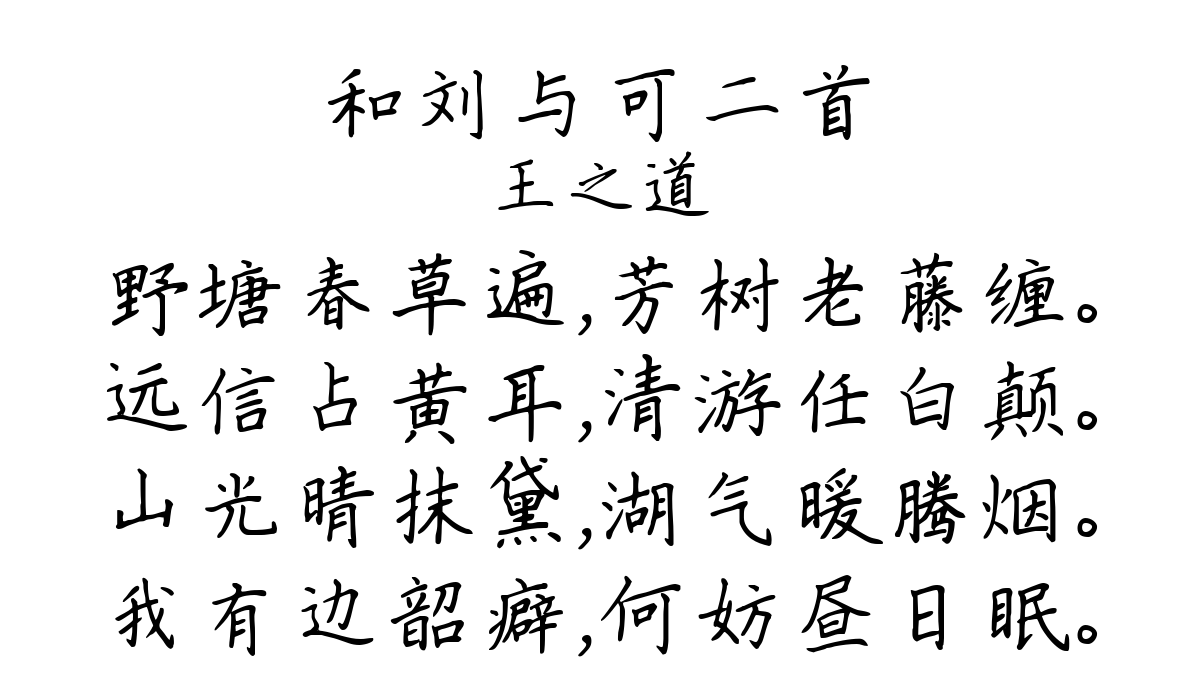 和刘与可二首
王之道
野塘春草遍,芳树老藤缠。
远信占黄耳,清游任白颠。
山光晴抹黛,湖气暖腾烟。
我有边韶癖,何妨昼日眠。